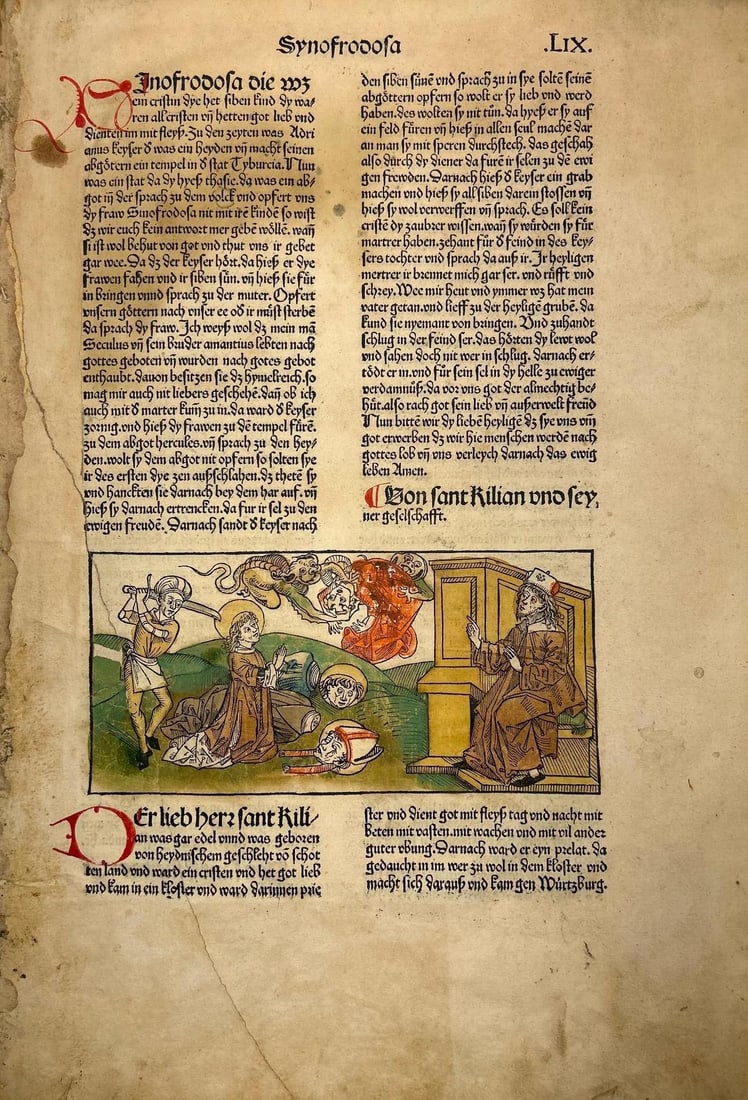 Synofrodosa
.LIX.
SJnofrodosa die wz
ein cristin dye het siben kind dy wa⸗
ren all cristen vñ hetten got lieb vnd
dienten im mit fleyß. Zu den zeyten was Adri
anus keyser d̕ was ein heyden vñ macht seinen
abgötern ein tempel in d̕ stat Tyburcia. Nun
was ein stat da dy hyeß thasie. da was ein ab⸗
got iñ der sprach zu dem volck vnd opfert vns
dy fraw Sinofrodosa nit mit irē kindē so wist
dz wir euch kein antwort mer gebē wöllē. wañ
si ist wol behut von got vnd thut vns ir gebet
gar wee. Da dz der keyser hört. da hieß er dye
frawen fahen vnd ir siben sün. vñ hieß sie für
in bringen vnnd sprach zu der muter. Opfert
vnsern göttern nach vnser ee od̕ ir müst sterbē
da sprach dy fraw. Ich weyß wol dz mein mā
Seculus vñ sein bruder amantius lebten nach
gottes geboten vñ wurden nach gotes gebot
enthaubt. dauon besitzen sie dz hymelreich. so
mag mir auch nit liebers geschehē. dañ ob ich
auch mit d̕ marter kum̄ zu in. da ward d̕ keyser
zornig. vnd hieß dy frawen zu dē tempel fürē.
zu dem abgot hercules. vñ sprach zu den hey⸗
den. wolt sy dem abgot nit opfern so solten sye
ir des ersten dye zen außschlahen. dz thetē sy
vnd hanckten sie darnach bey dem har auf. vñ
hieß sy darnach ertrencken. da fur ir sel zu den
ewigen freudē. Darnach sandt d̕ keyser nach
den siben sünē vnd sprach zu in sye soltē seinē
abgöttern opfern so wolt er sy lieb vnd werd
haben. des wolten sy nit tůn. da hyeß er sy auf
ein feld füren vñ hieß in allen seul machē dar
an man sy mit speren durchstech. das geschah
also dürch dy diener da furē ir selen zu dē ewi
gen frewden. Darnach hieß d̕ keyser ein grab
machen vnd hieß sy all siben darein stossen vñ
hieß sy wol verwerffen vñ sprach. Es soll kein
cristē dy zaubrer wissen. wañ sy würden sy für
martrer haben. zehant für d̕ feind in des key⸗
sers tochter vnd sprach da auß ir. Ir heyligen
mertrer ir brennet mich gar ser. vnd rüfft vnd
schrey. Wee mir heut vnd ymmer wz hat mein
vater getan. vnd lieff zu der heyligē grubē. da
kund sie nyemant von bringen. Vnd zuhandt
schlug in der feind ser. das hörten dy lewt wol
vnd sahen doch nit wer in schlug. darnach er⸗
tödt er in. vnd für sein sel in dy helle zu ewiger
verdamnüß. da vor vns got der almechtig be⸗
hüt. also rach got sein lieb vñ außerwelt freūd
Nun bitte wir dy liebē heyligē dz sye vns vm̄
got erwerben dz wir hie menschen werdē nach
gottes lob vñ vns verleych darnach das ewig
leben Amen.
Von sant Kilian vnd sey,
ner geselschafft.
DEr lieb herr sant Kili⸗
an was gar edel vnnd was geboren
von heydnischem geschlecht vō schot
ten land vnd ward ein cristen vnd het got lieb
vnd kam in ein kloster vnd ward darinnen prie
ster vnd dient got mit fleyß tag vnd nacht mit
beten mit vasten. mit wachen vnd mit vil ander
guter vbung. Darnach ward er eyn prelat. da
gedaucht in im wer zu wol in dem kloster vnd
macht sich darauß vnd kam gen Würtzburg.